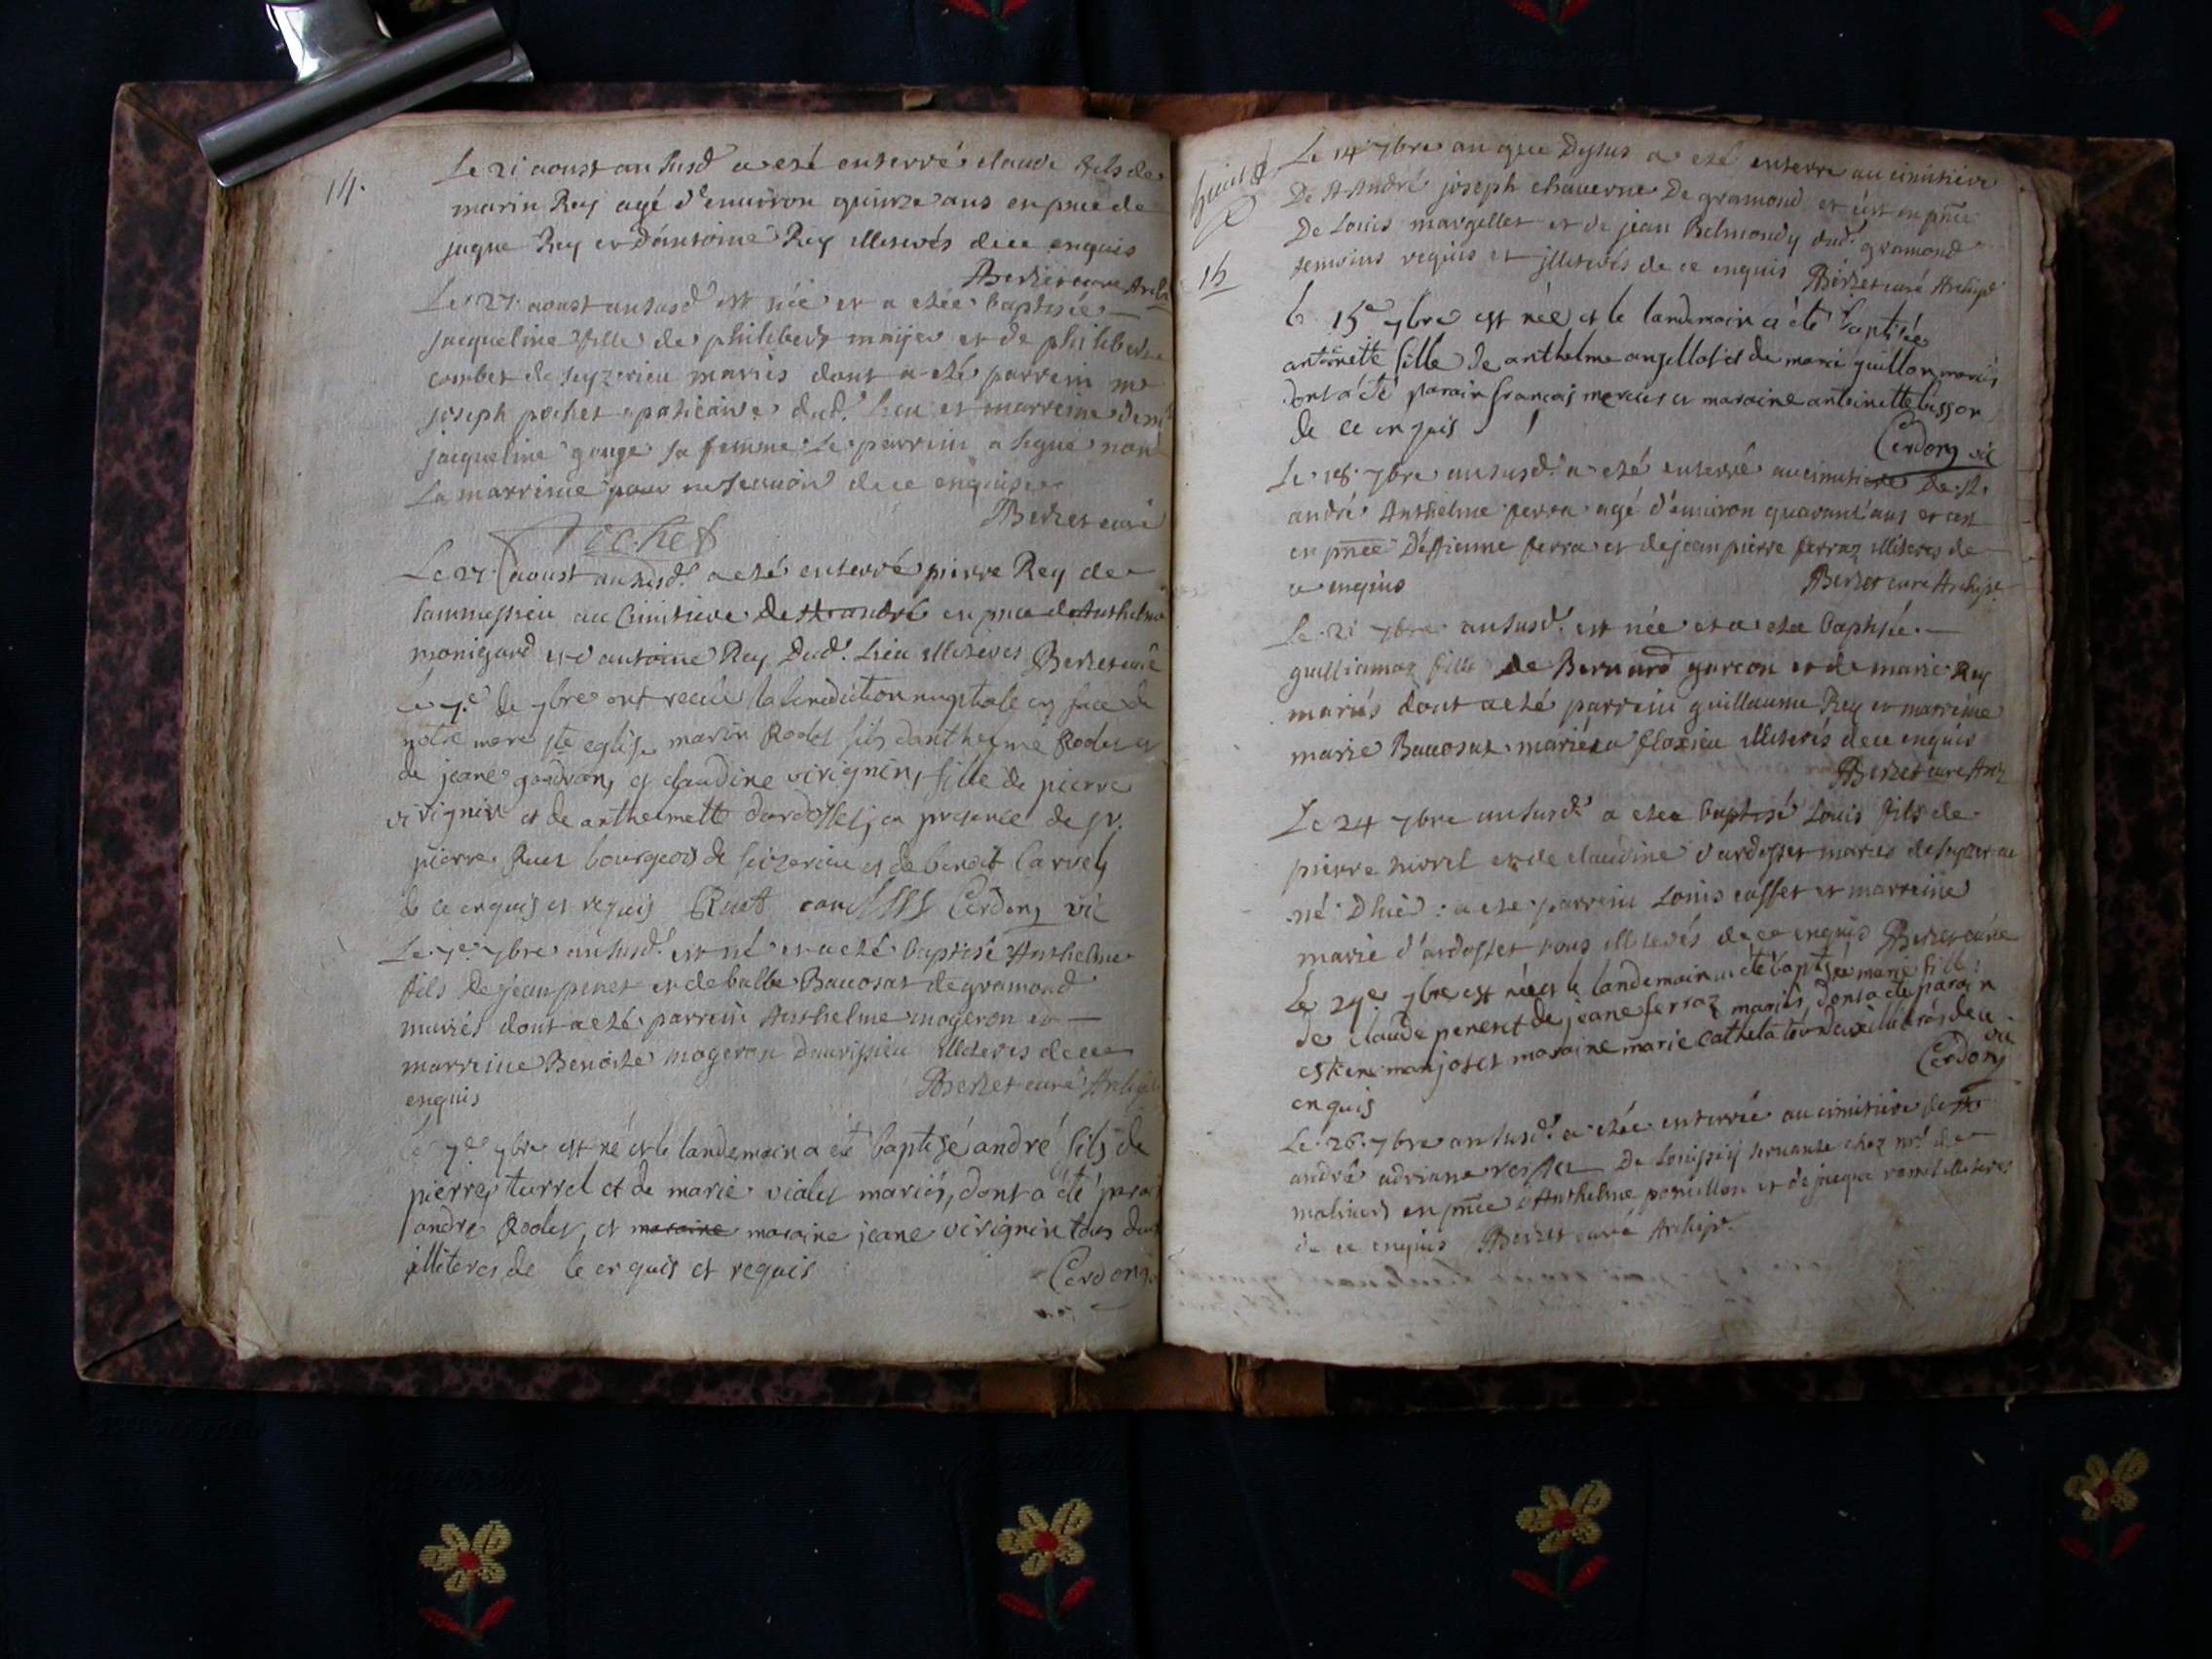 14.
Le 21 aoust an susd. a eté enterré claude fils de
marin Rey agé d'environ quinze ans en pnce de
jaque Rey et d'antoine Rey illiterés de ce enquis
Berzet curé Archi
Le 27. aoust an susd. est née et a etée baptisée
jacqueline fille de philibert et de philiberte
combet de seyzerieu mariés dont a eté parrein me
joseph pochet apoticaire dud. lieu et marreine
jacqueline gouge sa femme le parrein a signé non
la marreine pour ne scavoir de ce enquise
Berzet curé
Pochet
Le 27. aoust an susd. a eté enterré pierre Rey de
au cimitiere de st andré en pnce d Anthelme
monigard et d'antoine Rey dud. lieu illiterés Berzet curé
Le 7.e de 7bre ont receu la benediction nuptiale en face de
notre mere ste eglise marin Rodet fils d'anthelme Rodet et
de jeane et claudine virignin, fille de pierre
virignin et de anthelmette dardosset, en presence de sr.
pierre Ruet bourgeois de seizerieu et de benoit Carrel
de ce enquis et requis Ruet Cerdon vic
Le 7e 7bre an susd. est né et a eté baptisé Anthelme
fils de jean penet et de balbe Baccosat de gramond
mariés dont a eté parrein Anthelme mogeron et
marreine Benoite mogeron illiteres de ce
enquis Berzet curé Archip
le 7e 7bre est né et le landemain a été baptisé andré fils de
pierre turrel et de marie vialet mariés, dont a été parai
andre Rodet, et maraine maraine jeane virignin tous deux
illiteres de ce enquis et requis
Cerdon
huict
15
Le 14 7bre an que Dessus a eté enterre au cimitiere
De st André joseph chaverne De gramond et c'est en pnce
De Louis margellet et de jean Belmondy dud. gramond
temoins requis et illiterés de ce enquis Berzet curé Archip
le 15e 7bre est née et le landemain a été baptisée
antoinette fille de anthelme angellot et de marie guillon mariés
dont a été parain françois mercier et maraine antoinette bisson
de ce enquis
Cerdon vic
Le 18. 7bre an susd. a eté enterré au cimitiere De st.
andré Anthelme ferra agé d'environ quarant'ans et cest
en pnce D'estienne ferra et de jean pierre ferraz illiteres de
ce enquis Berzet curé Archip.
Le 21 7bre an susd. est née et a etée baptisée
guilliamaz fille de Bernard garcon et de marie Rey
mariés dont a eté parrein guillaume Rey et marreine
marie Baccosat mariés a illiterés de ce enquis
Berzet curé Arch
Le 24 7bre an susd. a etee baptisé Louis fils de
pierre et de claudine dardosset mariés de seyzerieu
né D'hier : a eté parrein Louis et marreine
marie d'ardosset tous illiterés de ce enquis Berzet curé
Le 24e 7bre est née et le landemain a été baptisée marie fille
de claude penet et de jeane ferraz mariés, dont a été parain
estiene manjot et maraine marie tous deux illiterés de ce
enquis Cerdon vic
Le 26. 7bre an susd. a etée enterrée au cimitiere de st
andré adriane De servante chez mr. de
en pnce d'Anthelme et de jacque illiteres
de ce enquis Berzet curé Archip.